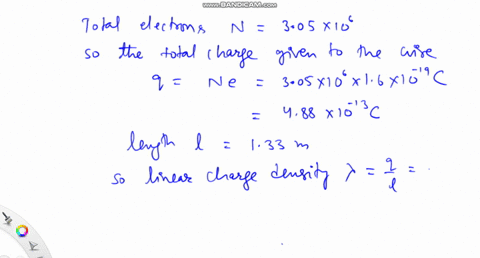 WWW.BANDICAM.COM
Total electrons N = 3.05 × 10⁶
so the total charge given to the wire
q = Ne = 3.05 × 10⁶ × 1.6 × 10⁻¹⁹ C
= 4.88 × 10⁻¹³ C
length l = 1.33 m
so linear charge density λ = q/l =